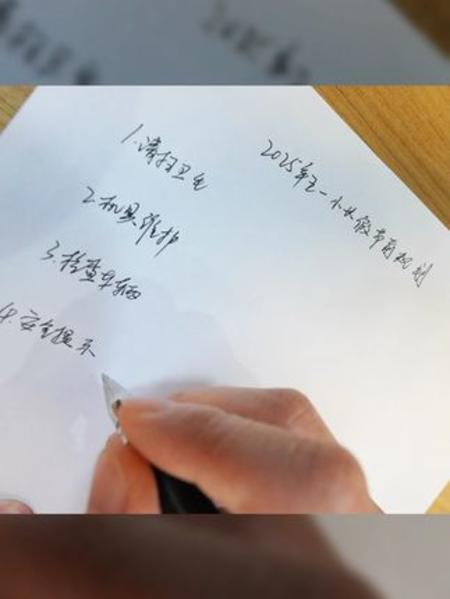 2025年五一小长假节前规划
1.清扫卫生
2.机具维护
3.检查车辆
4.安全提示